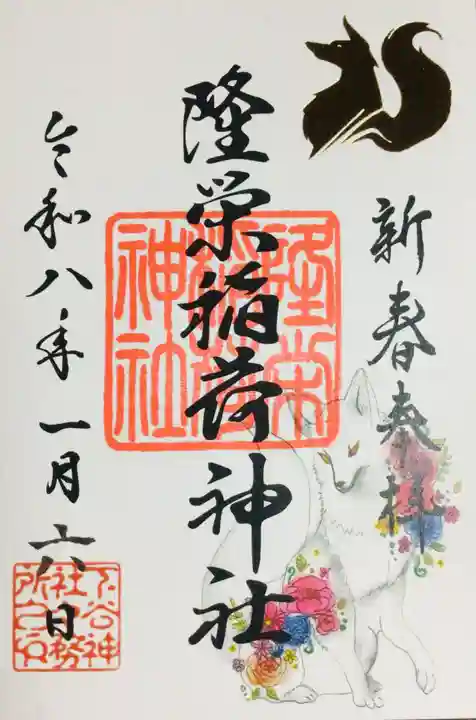 新春奉拝
隆栄稲荷神社
隆栄稲荷神社
令和八年一月六日
下谷神社社務所之印